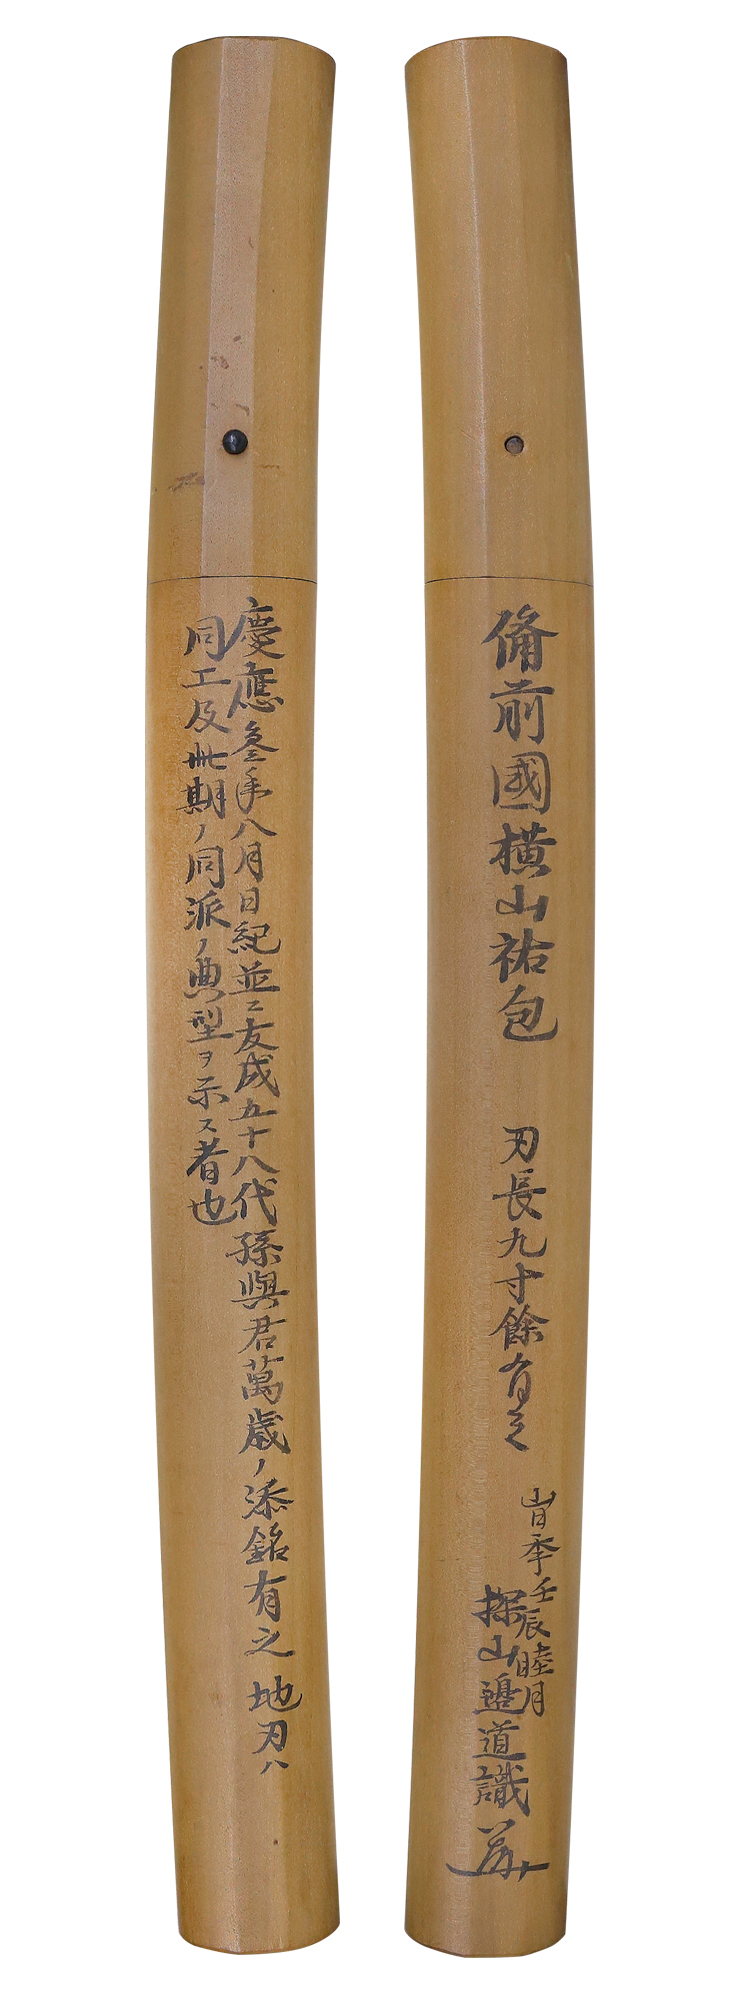 備前國横山祐包 刃長九寸餘有之
時季壬辰睦月
探山邉道識
慶應叄年八月日紀並ニ友成五十八代孫與君萬歳ノ添銘有之 地刃ハ
同工及此期ノ同派ノ典型ヲ示ス者也